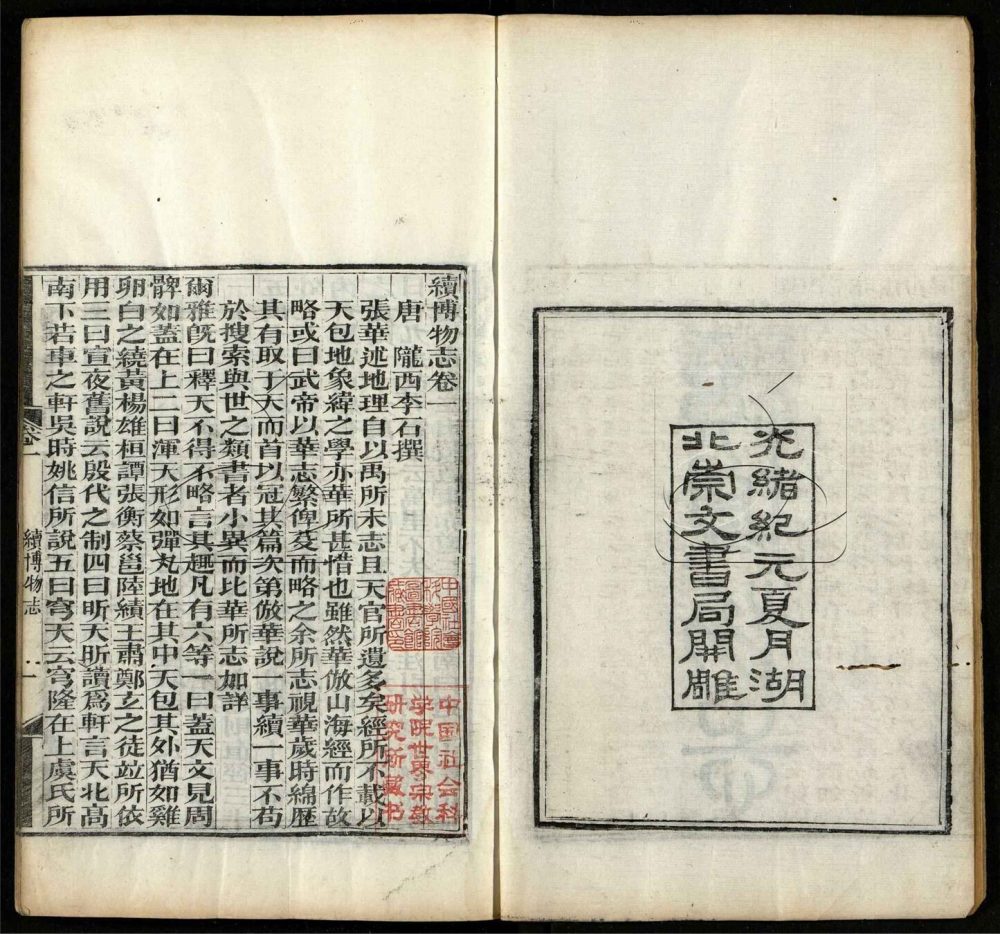 光緒紀元夏月湖
北崇文書局開雕
續博物志卷一
唐 隴西李石撰
張華述地理自以禹所未志且天官所遺多矣經所不載以
天包地象緯之學亦華所甚惜也雖然華倣山海經而作故
略或曰武帝以華志繁俾芟而略之余所志視華歲時綿歷
其有取于天而首以冠其篇次第倣華說一事續一事不苟
於搜索與世之類書者小異而比華所志加詳
爾雅旣曰釋天不得不略言其趣凡有六等一曰蓋天文見周
髀如蓋在上二曰渾天形如彈丸地在其中天包其外猶如雞
卵白之繞黃楊雄桓譚張衡蔡邕陸績王肅鄭立之徒竝所依
用三曰宣夜舊說云殷代之制四曰昕天昕讀爲軒言天北高
南下若車之軒吳時姚信所說五曰穹天云穹隆在上虞氏所
續博物志
卷一
一
中國社會
科學院
圖書館
藏書印
中国社会科
学院世界宗教
研究所藏书